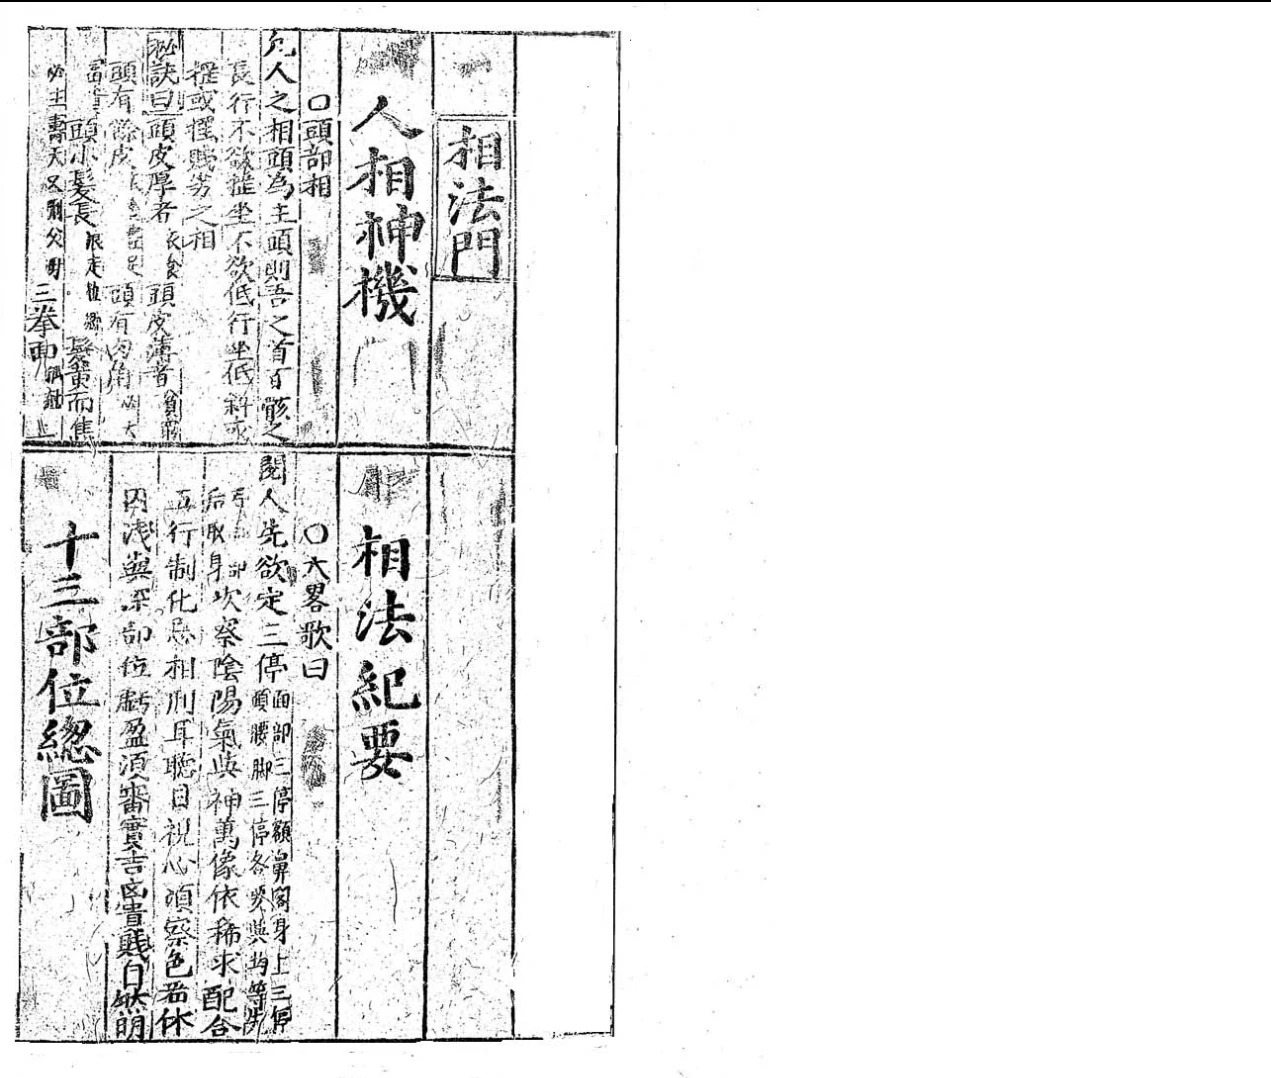 相法門
人相神機
○頭部相
凡人之相頭為主頭則吾之首百骸之
長行不欲搖坐不欲低行坐低斜或
搖或擺賤劣之相
秘訣曰頭皮厚者衣食頭皮薄者貧
頭有餘皮 足頭有肉角必大
富貴頭小髮長 髮黃而焦
必主壽夭又刑父母三拳面
相法紀要
○大畧歌曰
閱人先欲定三停面部三停額鼻閣身上三停
頭腰脚三停各要與均等先
后取身次察陰陽氣與神萬像依稀求配合
五行制化忌相刑耳聽目視心須察色若休
囚淺與深部位虧盈須審實吉凶貴賤自然明
十三部位緫圖